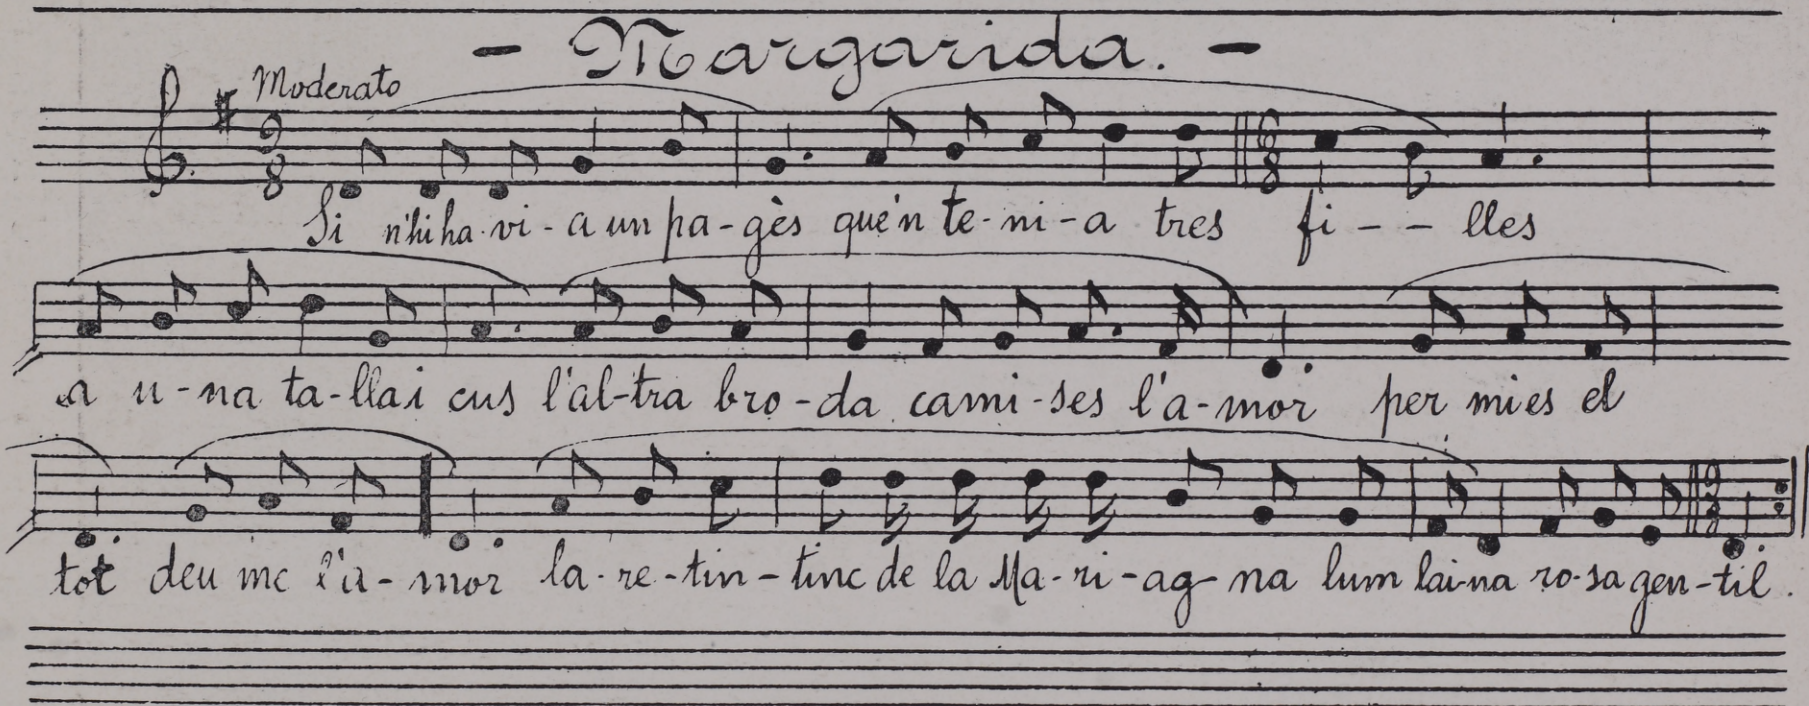 - Margarida. -
Moderato
Si n'hi ha-vi-a un pa-gès que'n te-ni-a tres fi--lles
a u-na ta-lla i cus l'al-tra bro-da cami-ses l'a-mor per mi es el
tot deu me l'a-mor la-re-tin-tinc de la Ma-ri-ag-na lum lai-na ro-sa gen-til.